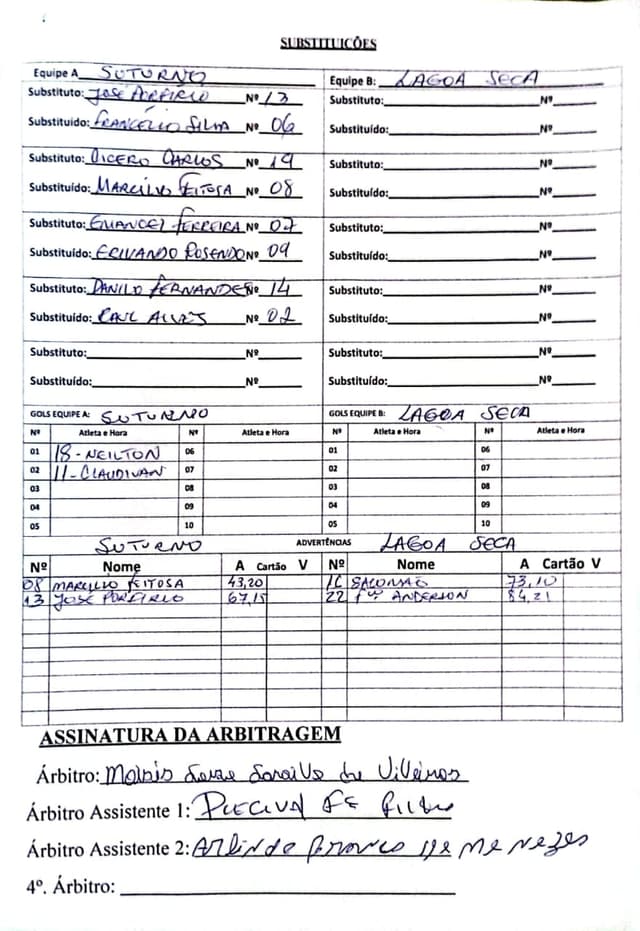 SUBSTITUIÇÕES
Equipe A SUTURNO Equipe B: LAGOA SECA
Substituto: JOSÉ PORFIRIO Nº 13 Substituto: Nº
Substituído: FRANCÉLIO SILVA Nº 06 Substituído: Nº
Substituto: CICERO CARLOS Nº 19 Substituto: Nº
Substituído: MARCILIO FEITOSA Nº 08 Substituído: Nº
Substituto: EMANOEL FERREIRA Nº 07 Substituto: Nº
Substituído: ERIVANDO ROSENDO Nº 09 Substituído: Nº
Substituto: DANILO FERNANDES Nº 14 Substituto: Nº
Substituído: RAUL ALVES Nº 02 Substituído: Nº
Substituto: Nº Substituto: Nº
Substituído: Nº Substituído: Nº
GOLS EQUIPE A: SUTURNO GOLS EQUIPE B: LAGOA SECA
Nº Atleta e Hora Nº Atleta e Hora Nº Atleta e Hora Nº Atleta e Hora
01 18 - NEILTON 06 01 06
02 11 - CLAUDIVAN 07 02 07
03 08 03 08
04 09 04 09
05 10 05 10
SUTURNO ADVERTÊNCIAS LAGOA SECA
Nº Nome A Cartão V Nº Nome A Cartão V
08 MARCILIO FEITOSA 43,20 16 SALOMÃO 73,10
13 JOSÉ PORFIRIO 67,15 22 ANDERSON 84,21
ASSINATURA DA ARBITRAGEM
Árbitro: de
Árbitro Assistente 1:
Árbitro Assistente 2: Arlindo Menezes
4º. Árbitro: